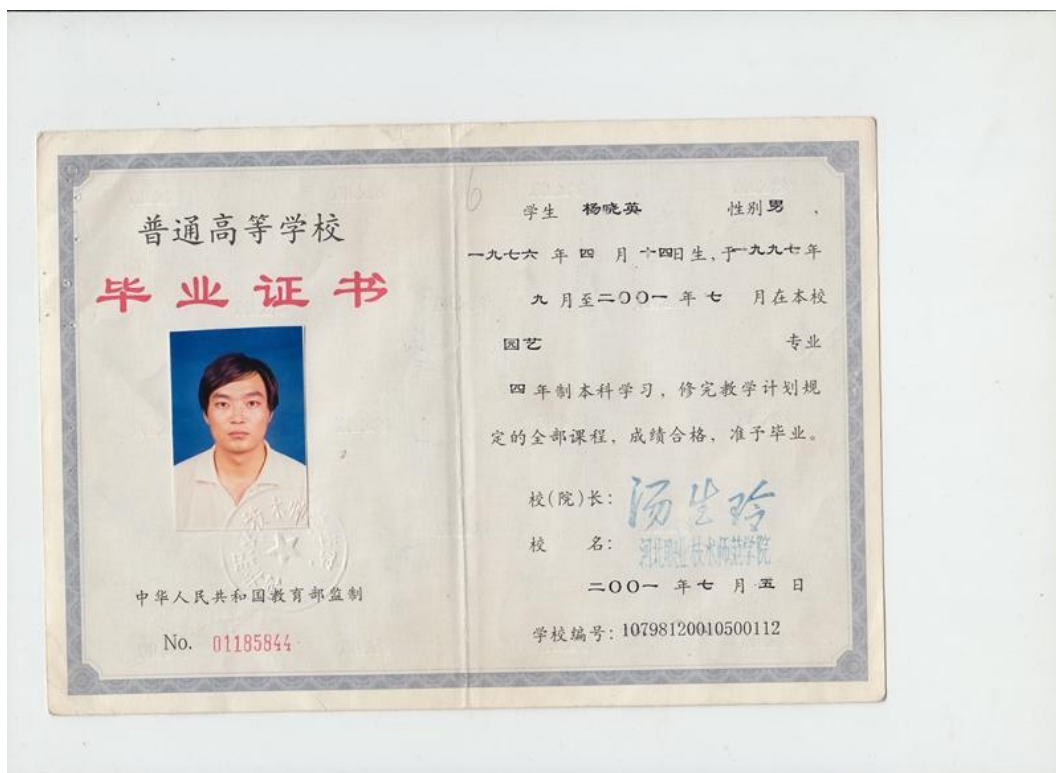 普通高等学校
毕业证书
中华人民共和国教育部监制
No. 01185844
6
学生 杨晓英 性别 男 ，
一九七六 年 四 月 十四日生，于一九九七年
九 月至二〇〇一 年 七 月在本校
园艺 专业
四 年制本科学习，修完教学计划规
定的全部课程，成绩合格，准予毕业。
校(院)长：汤生玲
校 名：河北职业技术师范学院
二〇〇一 年 七 月 五 日
学校编号：10798120010500112